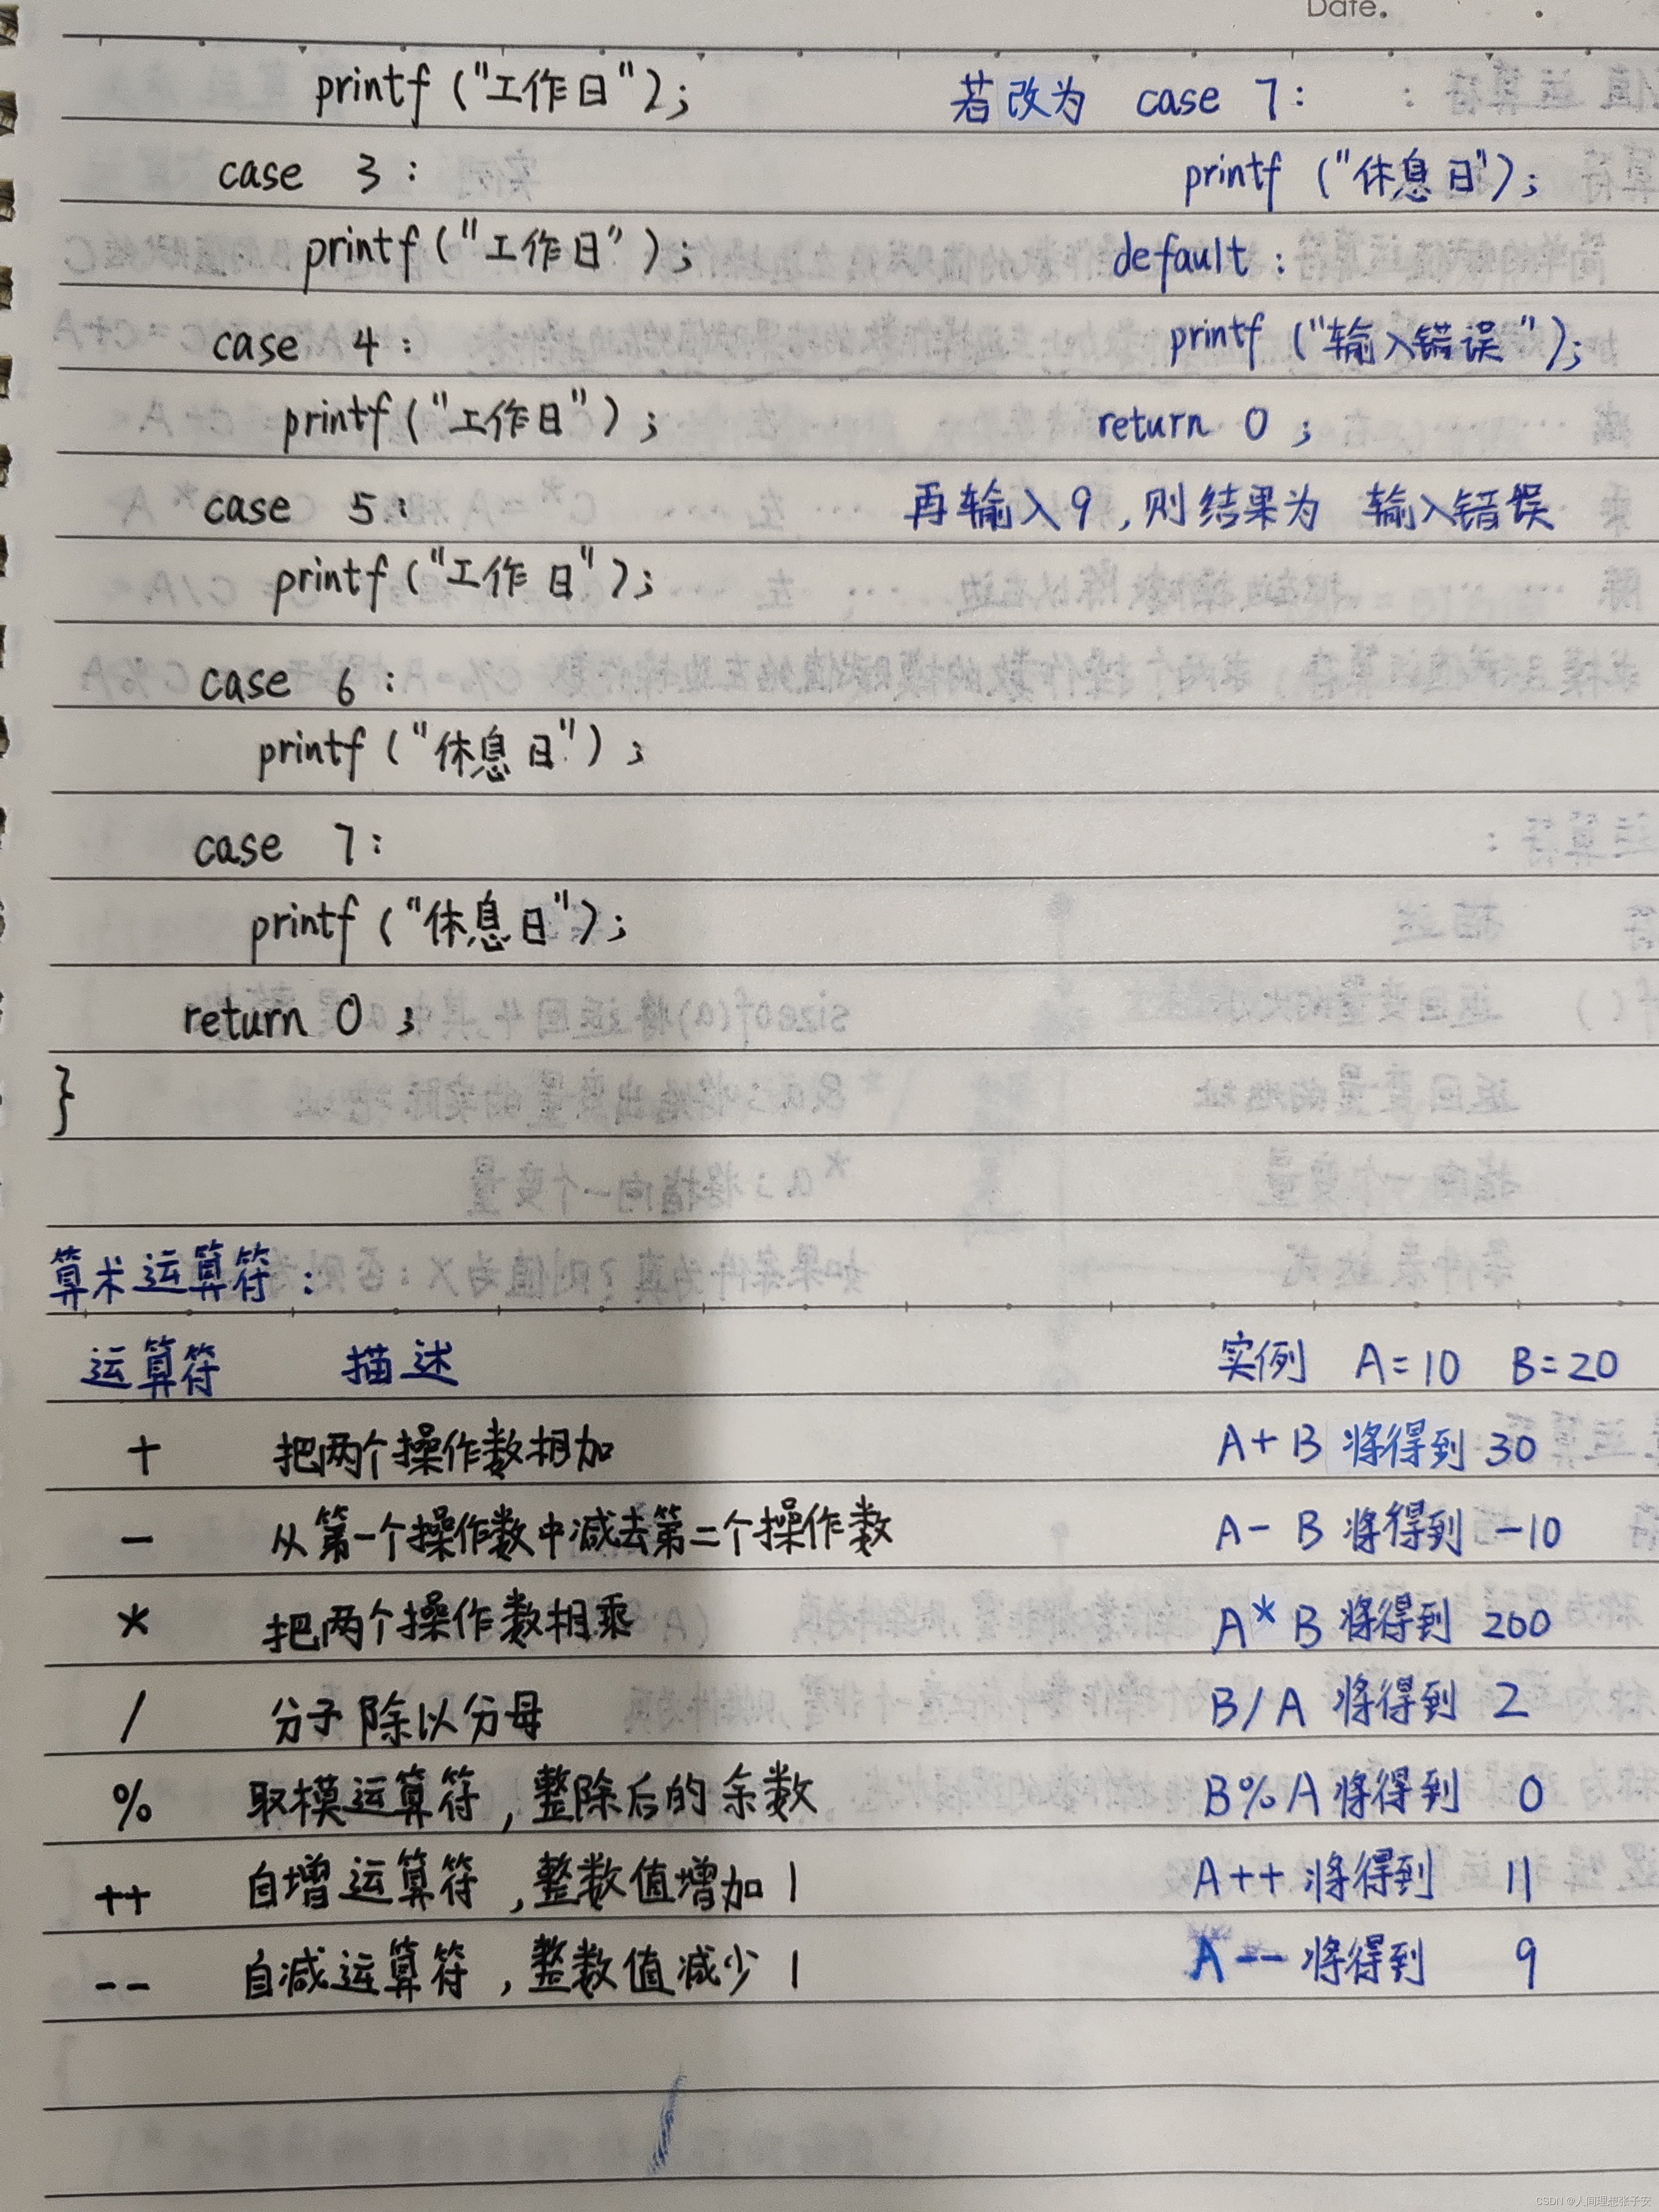 Date.
printf ("工作日");
case 3 :
printf ("工作日");
case 4 :
printf ("工作日");
case 5 :
printf ("工作日");
case 6 :
printf ("休息日");
case 7 :
printf ("休息日");
return 0 ;
}
若改为 case 7 :
printf ("休息日");
default :
printf ("输入错误");
return 0 ;
再输入9,则结果为 输入错误
算术运算符 :
运算符 描述 实例 A=10 B=20
+ 把两个操作数相加 A+B 将得到 30
- 从第一个操作数中减去第二个操作数 A- B 将得到 -10
* 把两个操作数相乘 A* B 将得到 200
/ 分子除以分母 B/A 将得到 2
% 取模运算符,整除后的余数 B%A 将得到 0
++ 自增运算符,整数值增加 1 A++ 将得到 11
-- 自减运算符,整数值减少 1 A-- 将得到 9
CSDN @人间理想张子安